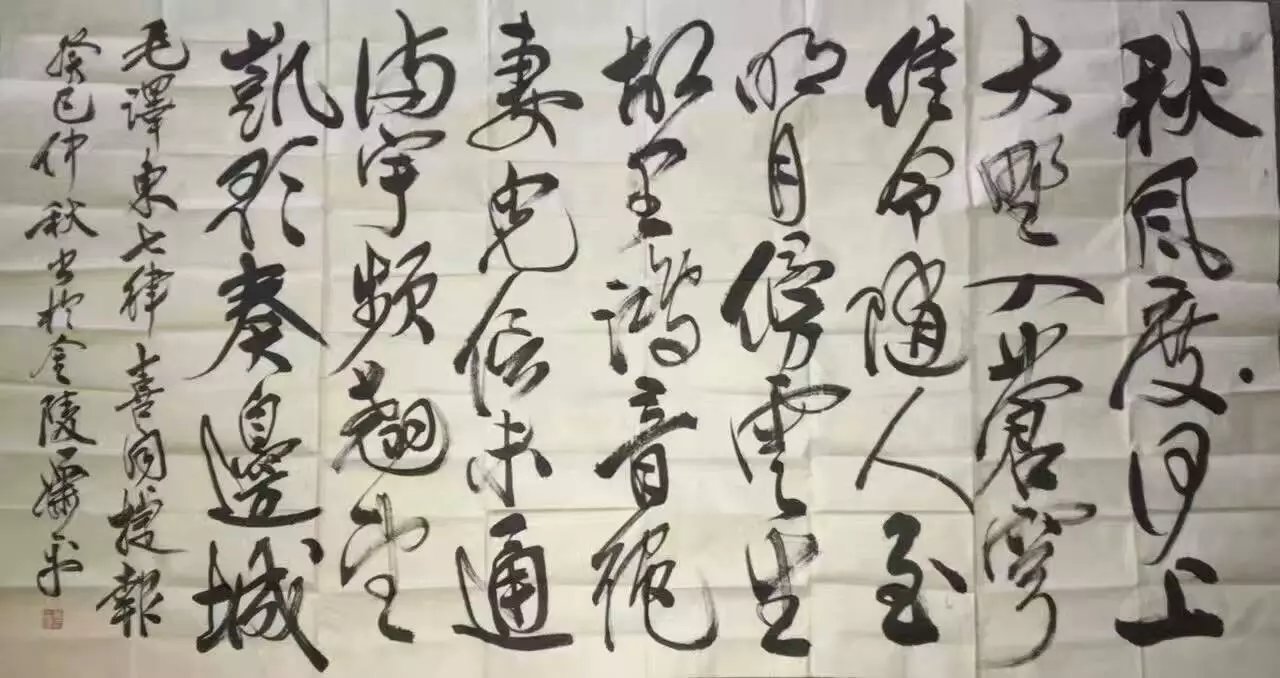 秋風度河上
大野入蒼穹
佳令随人至
明月傍雲生
故里鴻音絶
妻兒信未通
满宇频翹望
凱歌奏邊城
毛澤東七律喜闻捷報
癸巳仲秋书於金陵